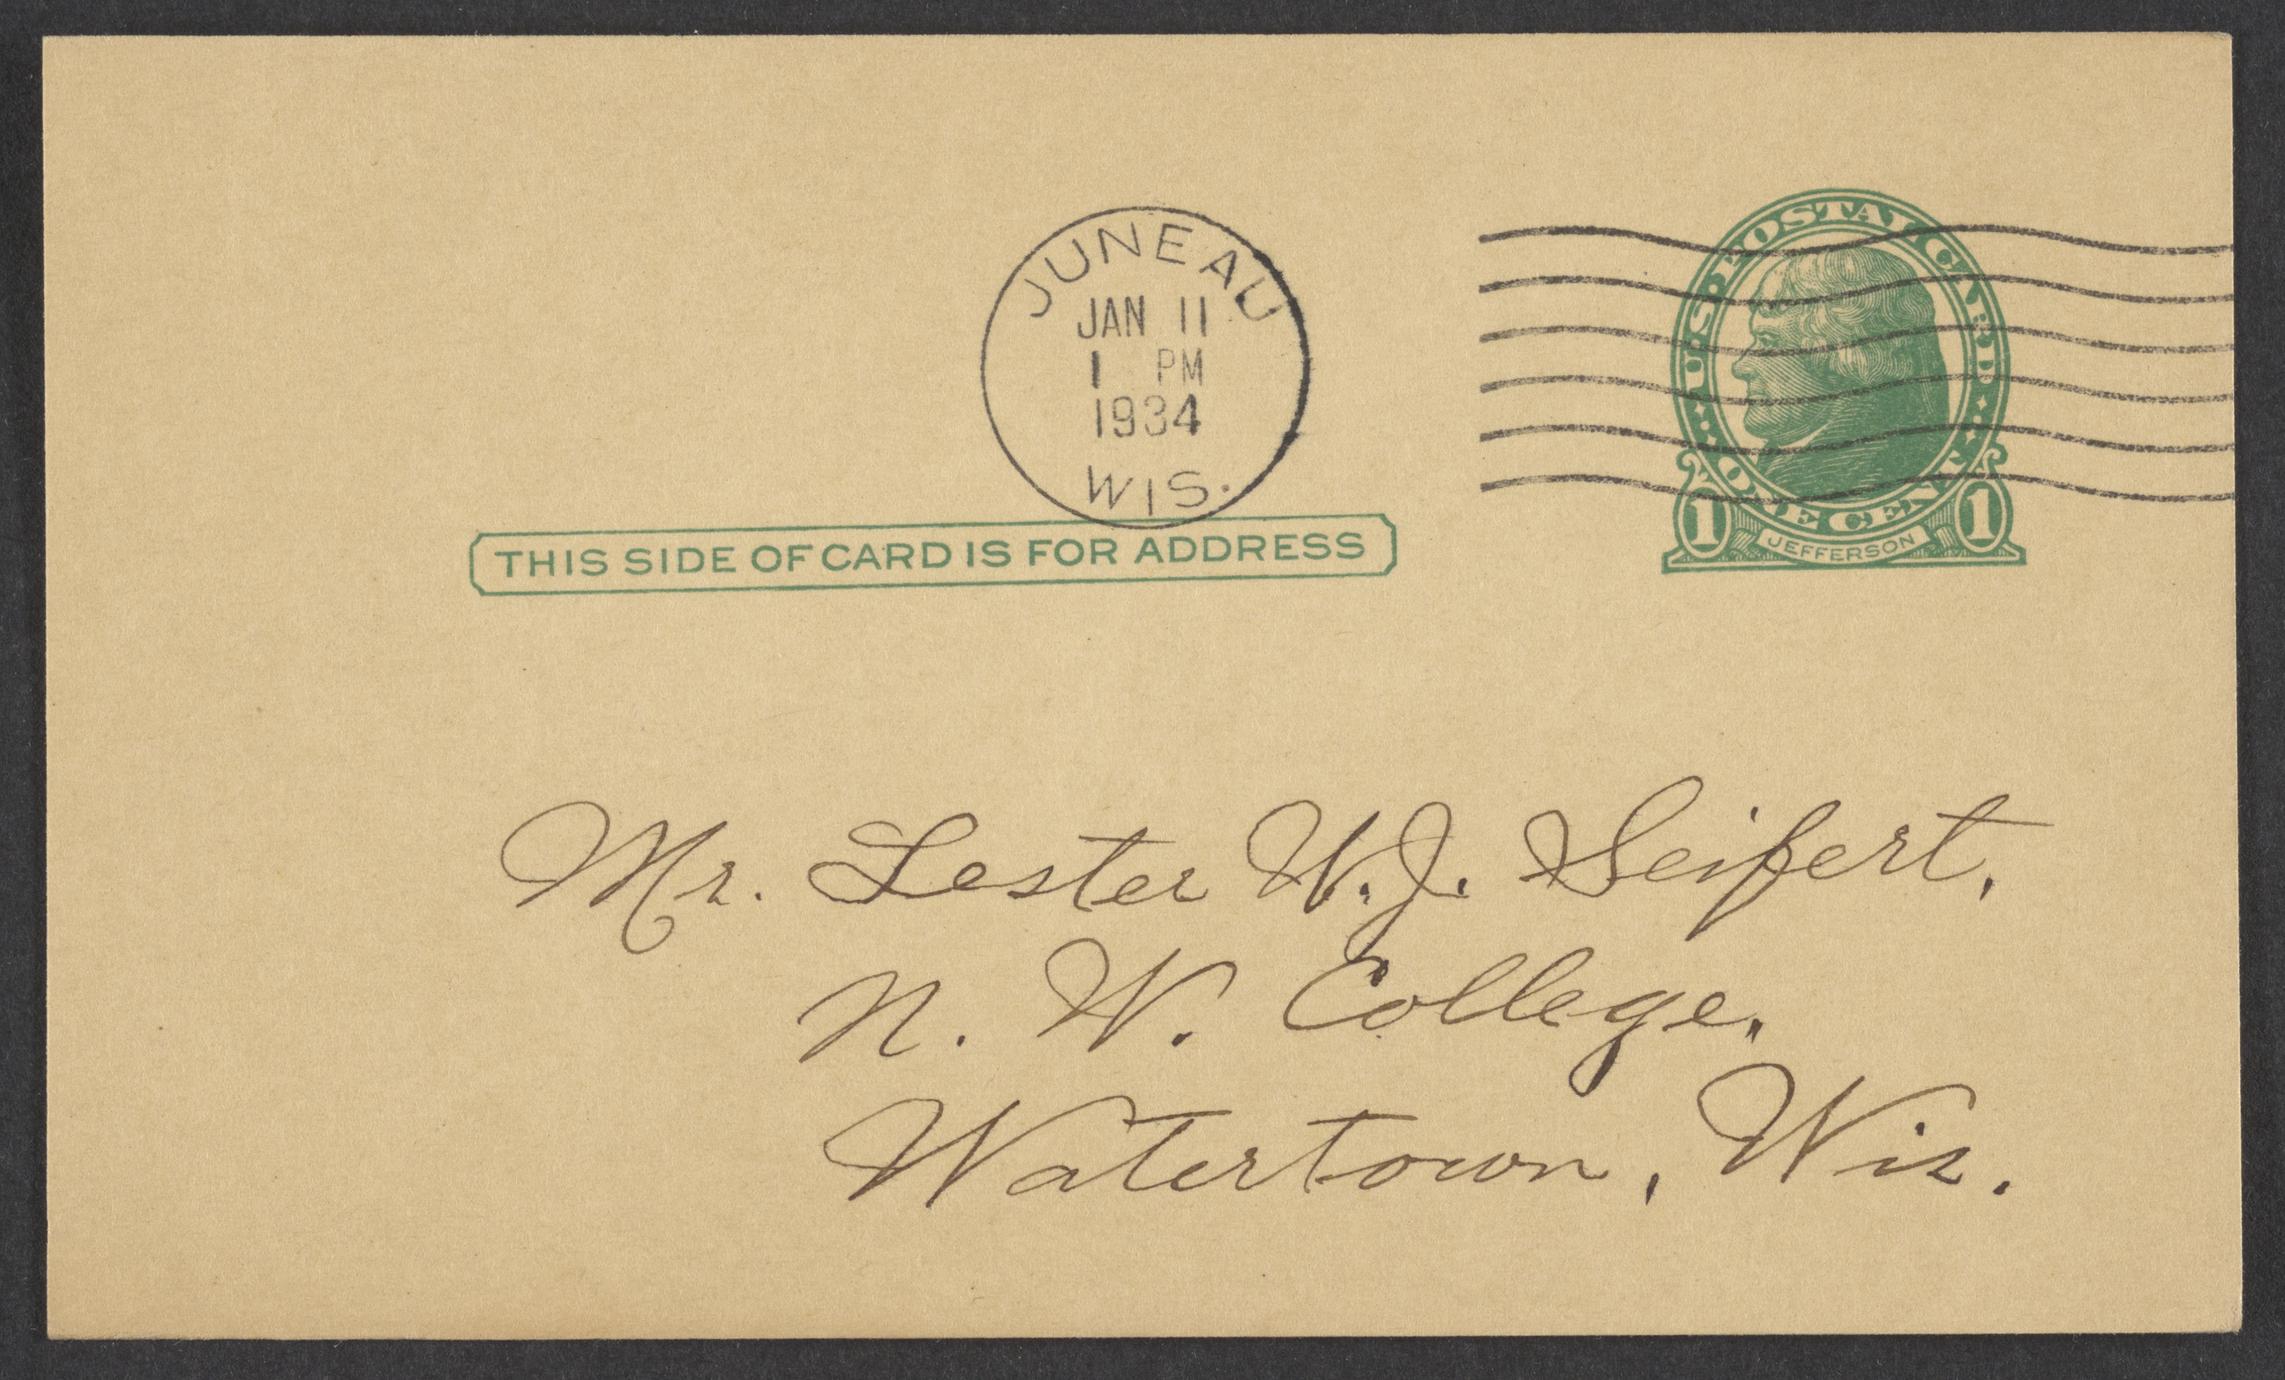 JUNEAU
JAN 11
1 PM
1934
WIS.
U.S. POSTAL CARD
ONE CENT
1 JEFFERSON 1
THIS SIDE OF CARD IS FOR ADDRESS
Mr. Lester W. J. Seifert,
N. W. College,
Watertown, Wis.